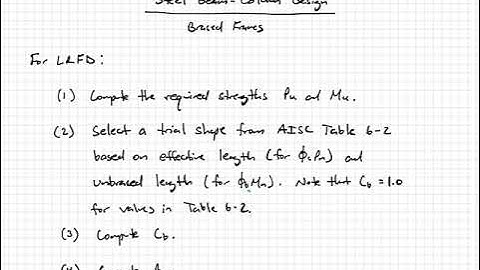 Steel Beam-Column Design
Braced Frames
For LRFD:
(1) Compute the required strengths Pu and Mu.
(2) Select a trial shape from AISC Table 6-2
based on effective length (for ϕcPn) and
unbraced length (for ϕbMn). Note that Cb = 1.0
for values in Table 6-2.
(3) Compute Cb.
(4) Compute